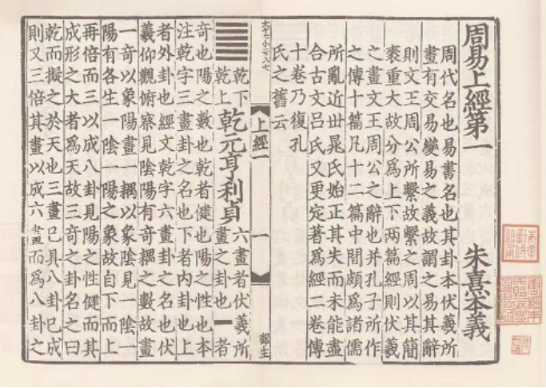 周易上經第一
朱熹本義
周代名也易書名也其卦本伏羲所
畫有交易變易之義故謂之易其辭
則文王周公所繫故繫之周以其簡
袠重大故分爲上下兩篇經則伏羲
之畫文王周公之辭也并孔子所作
之傳十篇凡十二篇中間頗爲諸儒
所亂近世晁氏始正其失而未能盡
合古文吕氏又更定著爲經二卷傳
十卷乃復孔
氏之舊云
乾下
乾上
乾元亨利貞
六畫者伏羲所
畫之卦也一者
奇也陽之數也乾者健也陽之性也本
注乾字三畫卦之名也下者内卦也上
者外卦也經文乾字六畫卦之名也伏
羲仰觀俯察見陰陽有奇耦之數故畫
一奇以象陽畫一耦以象陰見一陰一
陽有各生一陰一陽之象故自下而上
再倍而三以成八卦見陽之性健而其
成形之大者爲天故三奇之卦名之曰
乾而擬之於天也三畫已具八卦已成
則又三倍其畫以成六畫而爲八卦之
上經一
一